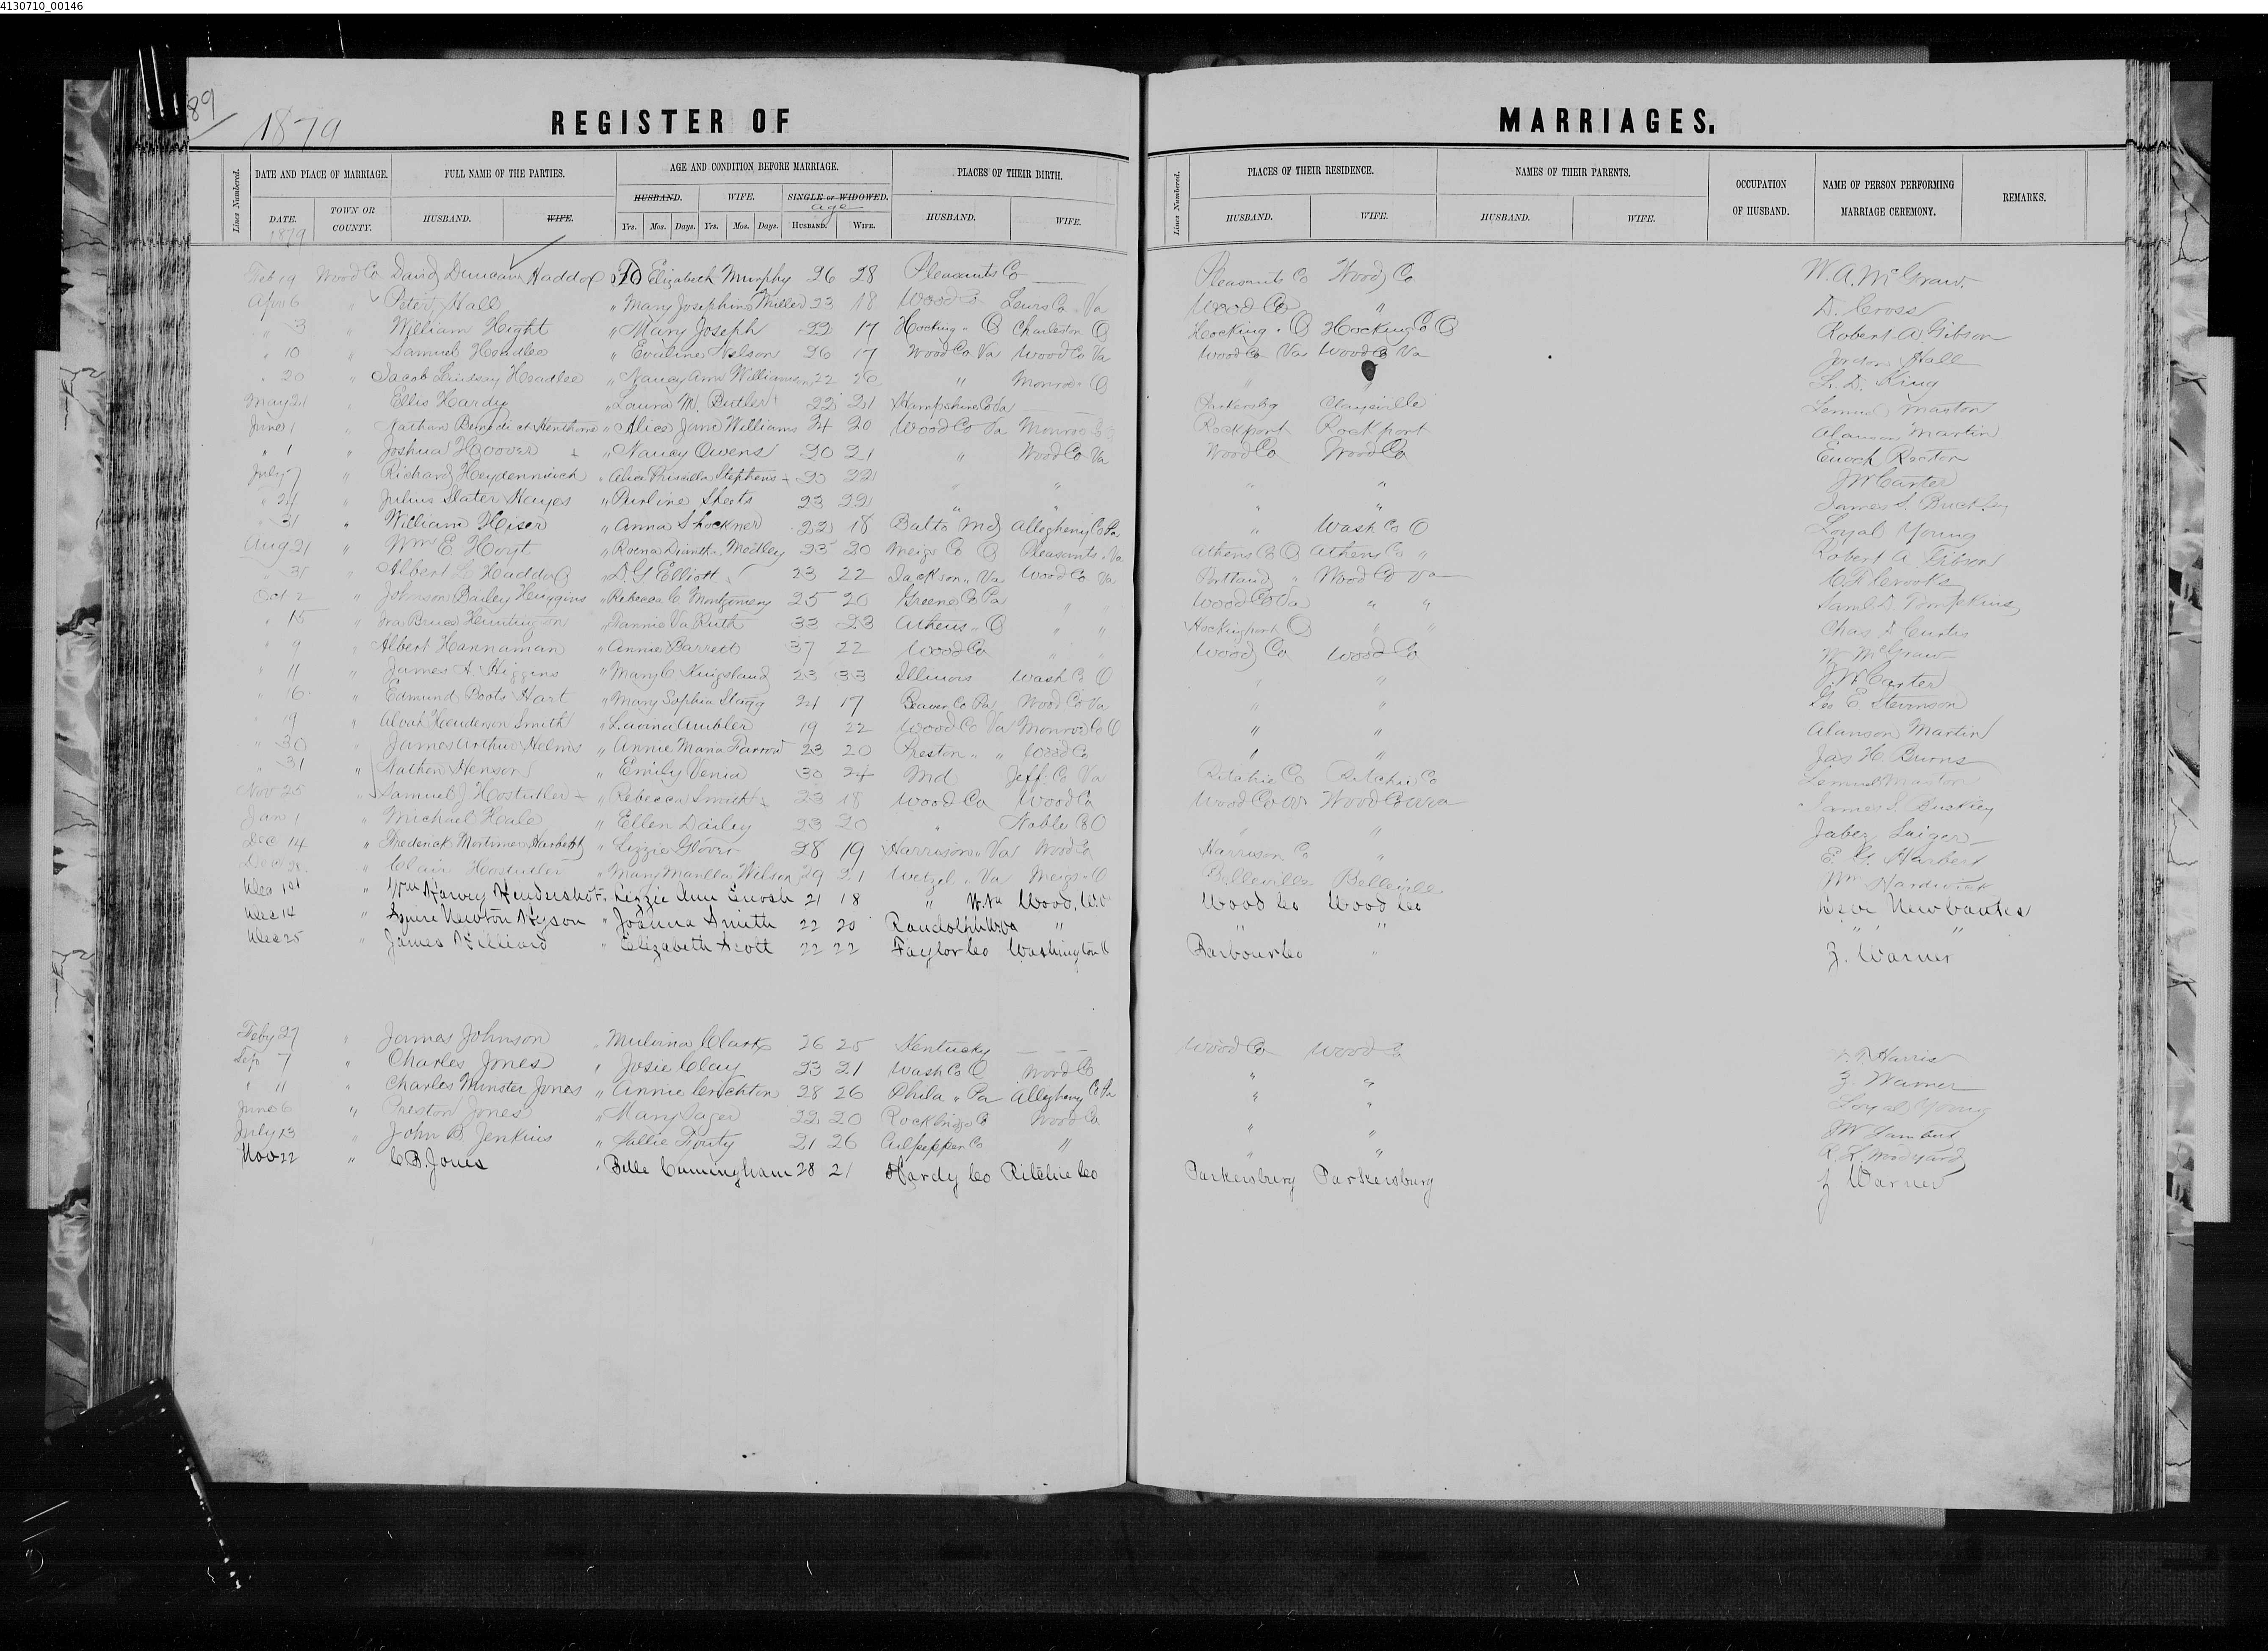 4130710_00146
89
1879
REGISTER OF MARRIAGES.
Lines Numbered. DATE AND PLACE OF MARRIAGE. FULL NAME OF THE PARTIES. AGE AND CONDITION BEFORE MARRIAGE. PLACES OF THEIR BIRTH. Lines Numbered. PLACES OF THEIR RESIDENCE. NAMES OF THEIR PARENTS. OCCUPATION OF HUSBAND. NAME OF PERSON PERFORMING MARRIAGE CEREMONY. REMARKS.
HUSBAND. WIFE. SINGLE or WIDOWED. age
DATE. 1879 TOWN OR COUNTY. HUSBAND. WIFE. Yrs. Mos. Days. Yrs. Mos. Days. HUSBAND. WIFE. HUSBAND. WIFE. HUSBAND. WIFE. HUSBAND. WIFE.
Feb 19 Wood Co David Duncan Haddox To Elizabeth Murphy 26 28 Pleasants Co — Pleasants Co Wood Co W. A. McGraw
Apr 6 " Peter Hall " Mary Josephine Miller 23 18 Wood Co Lewis Co Va Wood Co " D. Cross
" 3 " William Hight " Mary Joseph 22 17 Hocking " O Charleston O Hocking " O Hocking Co O Robert A. Gibson
" 10 " Samuel Hoadlee " Evaline Nelson 26 17 Wood Co Va Wood Co Va Wood Co Va Wood Co Va Jordon Hall
" 20 " Jacob Lindsay Hoadlee " Nancy Ann Williamson 22 26 " Monroe " O " " L. D. King
May 21 " Ellis Hardy " Laura M. Butler 22 21 Hampshire Co Va — Parkersbg Claysville Lemuel Maston
June 1 " Nathan Benedict Henthorne " Alice Jane Williams 24 20 Wood Co Va Monroe Co O Rockport Rockport Alanson Martin
" 1 " Joshua Hoover " Nancy Owens 20 21 " Wood Co Va Wood Co Wood Co Enoch Rector
July 7 " Richard Heydenreich " Alice Priscilla Stephens 23 22 " " " " J W Carter
" 24 " Julius Slater Hayes " Purline Sheets 23 22 " " " " James S. Buckley
" 31 " William Hiser " Anna Shockner 22 18 Balto Md Allegheny Co Pa " Wash Co O Loyal Young
Aug 21 " Wm E. Hoyt " Roena Diantha Medley 23 20 Meigs Co O Pleasants " Va Athens Co O Athens Co " Robert A Gibson
" 31 " Albert Haddox " D. G Elliott 23 22 Jackson " Va Wood Co Va Portland " Wood Co Va Crooks
Oct 2 " Johnson Bailey Huggins " Rebecca C. Montgomery 25 20 Greene Co Pa " " Wood Co Va " " Saml D. Tompkins
" 15 " Ira Bruce Huntington " Fannie Va Ruth 33 23 Athens " O " " Hockingport O " " Chas D Curtis
" 9 " Albert Hannaman " Annie Barrett 37 22 Wood Co " " Wood Co Wood Co W McGraw
" 11 " James A Higgins " Mary C Kingsland 23 33 Illinois Wash Co O " " J W Carter
" 16 " Edmund Boots Hart " Mary Sophia Stagg 24 17 Beaver Co Pa Wood Co Va " " Geo E Stevenson
" 19 " Alvah Henderson Smith " Lavina Ambler 19 22 Wood Co Va Monroe Co O " " Alanson Martin
" 30 " James Arthur Helms " Annie Maria Farrow 23 20 Preston " " Wood Co " " Jas H. Burns
" 31 " Nathan Henson " Emily Venia 30 24 Md Jeff. Co Va Ritchie Co Ritchie Co Lemuel Maston
Nov 25 " Samuel J Hostutler " Rebecca Smith 23 18 Wood Co Wood Co Wood Co Wood Co James S. Buckley
Jan 1 " Michael Hale " Ellen Dailey 23 20 " Noble Co O " " Jabez Luiger
Dec 14 " Frederick Mortimer Harbert " Lizzie Glover 28 19 Harrison " Va Wood Co Harrison Co " E. G. Harbert
Dec 28 " Clair Hostutler " Mary Manlla Wilson 29 21 Wetzel " Va Meigs " O Belleville Belleville Wm Hardwick
Dec 1st " Wm Harvey Hendershot " Lizzie Ann Enoch 21 18 " W.Va Wood, W.V Wood Co Wood Co Newbanks
Dec 14 " Squire Newton Hyson " Joanna Smith 22 20 Randolph W Va " " " " "
Dec 25 " James Hilliard " Elizabeth Scott 22 22 Taylor Co Washington O Barbour Co " Z. Warner
Feby 27 " James Johnson " Mulvina Clark 26 25 Kentucky — — Wood Co Wood Co Harris
Sep 7 " Charles Jones " Josie Clay 23 21 Wash Co O Wood Co " " Z. Warner
" 11 " Charles Minster Jones " Annie Crichton 28 26 Phila " Pa Allegheny Co Pa " " Loyal Young
June 6 " Preston Jones " Mary Sager 22 20 Rockbridge Co Wood Co " " J W Lambert
July 13 " John B. Jenkins " Sallie Fouty 21 26 Culpepper Co " " " R. L. Woodyard
Nov 22 " C. B. Jones " Belle Cunningham 28 21 Hardy Co Ritchie Co Parkersburg Parkersburg Z Warner